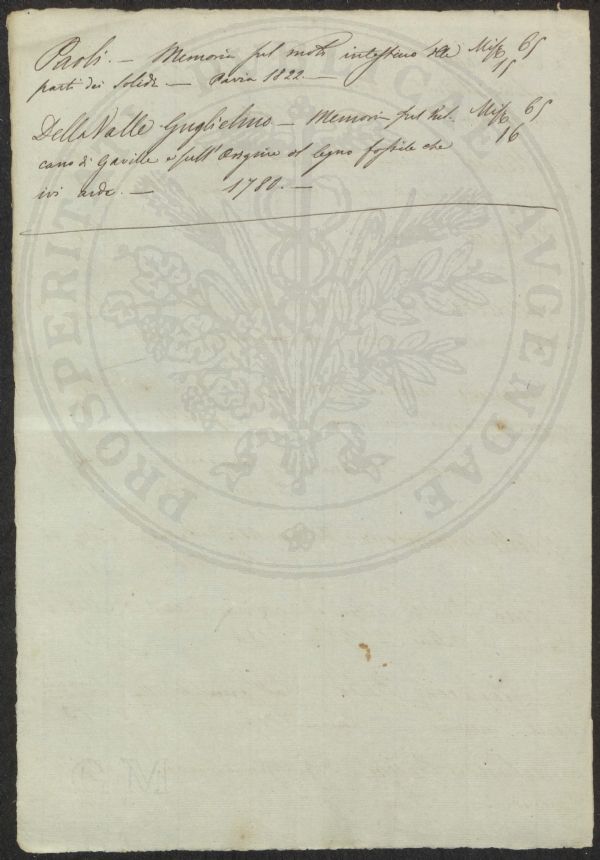 Paoli. — Memoria sul moto intestino delle Misc. 65
parti dei solidi — Pavia 1822. — 15
Della Valle Guglielmo — Memoria sul Vul- Misc. 65
cano di Gaville e sull'Origine del legno fossile che 16
ivi arde. — 1780. —
PROSPERITATI PUBLICAE AVGENDAE